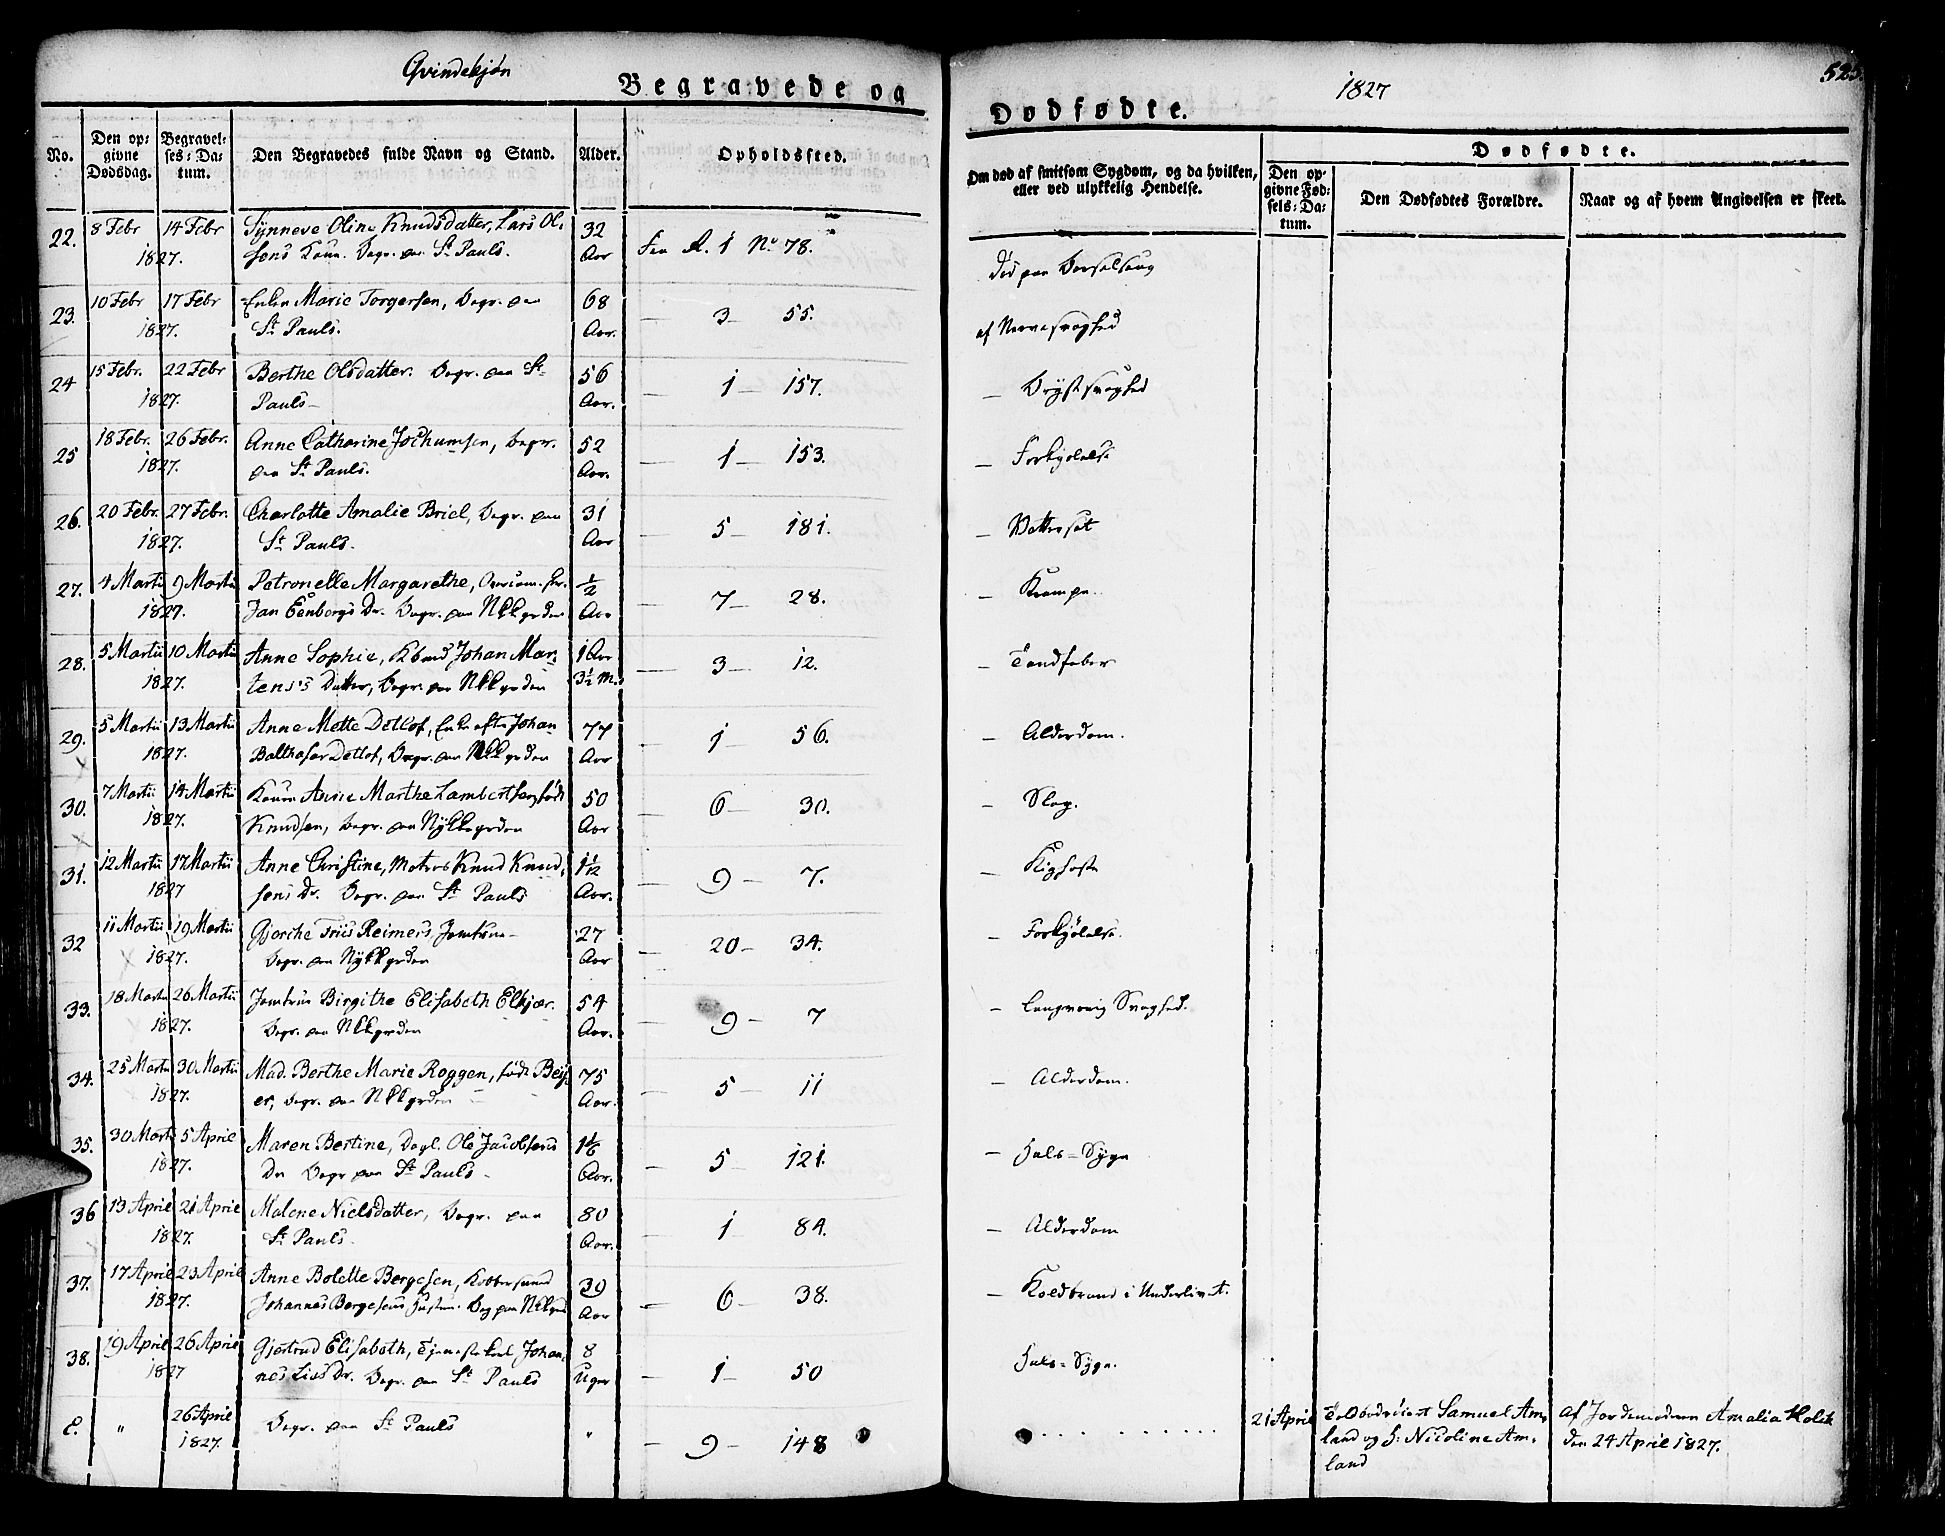 Qvindekjøn
Begravede og
No.
Den opgivne Dødsdag.
Begravelses-Datum.
Den Begravedes fulde Navn og Stand.
Alder.
Opholdssted.
22. 8 Febr 14 Febr Synneve Oline Knudsdatter, Lars Ol- 32
1827. sens Kone. Begr. paa St. Pauls. Aar R. 1 No 78.
23. 10 Febr 17 Febr Enken Marie Torgersen, Begr. paa 68
1827. St. Pauls. Aar. — 3 — 55.
24 15 Febr. 22 Febr Berthe Olsdatter. Begr. paa St. 56
1827. Pauls — Aar. — 1 — 157.
25 18 Febr. 26 Febr. Anne Catharine Jochumsen, Begr. 52
1827. paa St. Pauls. Aar. — 1 — 153.
26. 20 Febr. 27 Febr. Charlotte Amalie Briel, Begr. paa 31
1827. St. Pauls. Aar — 5 — 181.
27. 4 Martii 9 Martii Petronelle Margarethe, ½
1827. Jan Eenbergs Dr. Begr. paa NKkgrden Aar — 7 — 28.
28. 5 Martii 10 Martii Anne Sophie, Kbmd Johan Mar- 1 Aar
1827. tens's Datter, Begr. paa NKkgrden 3½ M. — 3 — 12.
29. 5 Martii 13 Martii Anne Mette Detlof, Enke efter Johan 77
1827. Balthasar Detlof, Begr. paa NKkgrden Aar — 1 — 56.
30. 7 Martii 14 Martii Konen Anne Marthe Lambertsen, født 50
1827. Knudsen, Begr. paa Nykkegrden Aar — 6 — 30.
31. 12 Martii 17 Martii Anne Christine, Matros Knud Knud- 1½
1827 sens Dr. Begr. paa St. Pauls Aar. — 9 — 7.
32 11 Martii 19 Martii Gjerche Friis Reimers, Jomfrue — 27
1827. Begr. paa Nykkgrden Aar — 20 — 34.
33. 18 Martii 26 Martii Jomfrue Birgithe Elisabeth Elkjær. 54
1827. Begr. paa NKkgrden Aar. — 9 — 7
34. 25 Martii 30 Martii Mad. Berthe Marie Roggen, født Bey- 75
1827. er, Begr. paa NKkgrden Aar. — 5 — 11
35. 30 Martii 5 April Maren Bertine, Dagl. Ole Jacobsens 1⅙
1827. Dr Begr paa St. Pauls — Aar. — 5 — 121.
36 13 April 21 April Malene Nielsdatter, Begr. paa 80
1827. St. Pauls. Aar. — 1 — 84.
37. 17 April 23 April Anne Bolette Bergesen, 39
1827. Johannes Bergesens Hustru. Beg paa NKkgrd Aar — 6 — 38.
38. 19 April 26 April Gjertrud Elisabeth, Tjenestekarl Johan- 8
1827 nes Lies Dr. Begr. paa St. Pauls Uger — 1 — 50
C. " 26 April Begr. paa St. Pauls "
1827. — 9 — 148
1827
Dødfødte.
Om død af smitsom Sygdom, og da hvilken, eller ved ulykkelig Hendelse.
Dødfødte.
Den opgivne Fødsels-Datum.
Den Dødfødtes Forældre.
Naar og af hvem Angivelsen er skeet.
Død paa Barselseng
af Nervesvaghed
— Brystsvaghed
— Forkjølelse
— Vattersot
— Krampe
— Tandfeber
— Alderdom.
— Slag.
— Kighoste
— Forkjølelse.
— Langvarig Svaghed.
— Alderdom.
— Hals-Syge
— Alderdom
— Koldbrand i Underlivet.
— Hals-Syge.
21 April Toldbetjent Samuel Am- Af Jordemoderen Amalia Holck
land og H: Nicoline Am- den 24 April 1827.
land